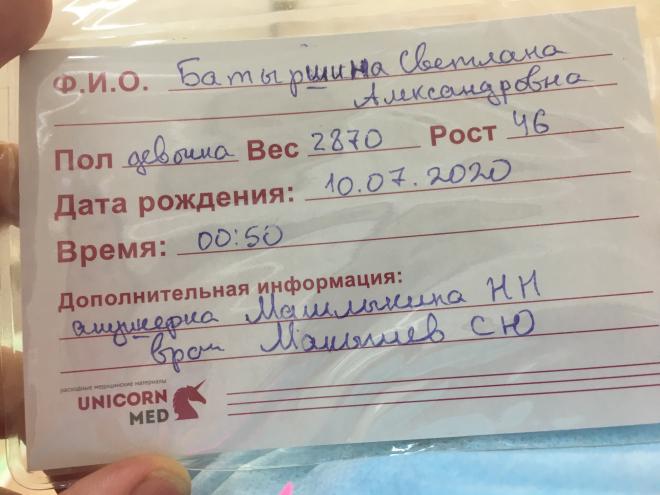 Ф.И.О. Батыршина Светлана
Александровна
Пол девочка Вес 2870 Рост 46
Дата рождения: 10.07.2020
Время: 00:50
Дополнительная информация:
акушерка НН
врач СЮ
расходные медицинские материалы
UNICORN
MED